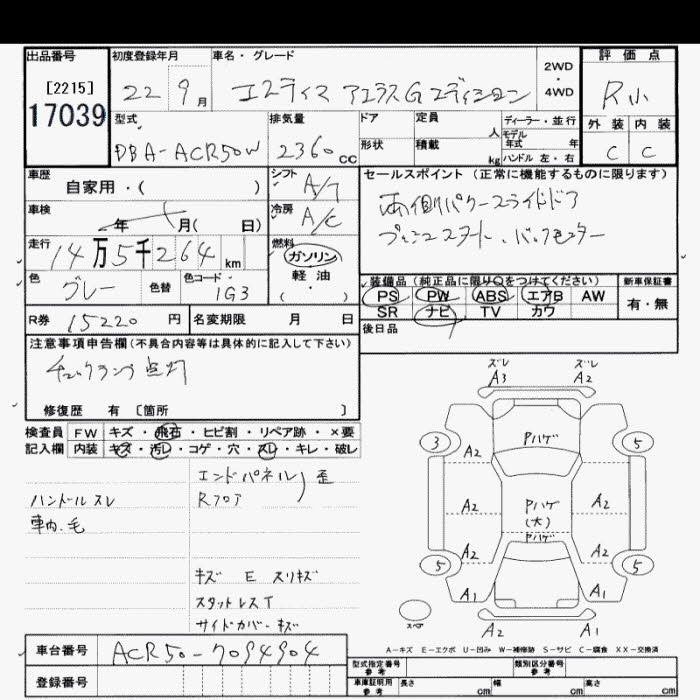 出品番号 初度登録年月 車名・グレード 2WD・4WD 評価点
[2215]
17039
22 9月 エスティマ アエラスG エディション R小
外装 内装
C C
型式 排気量 ドア 定員 人 ディーラー・並行
モデル年式 年
形状 積載 kg ハンドル 左・右
DBA-ACR50W 2360cc
車歴 シフト セールスポイント (正常に機能するものに限ります)
自家用・( ) A/T
両側パワースライドドア
車検 冷房
年 月( 日) A/C
プッシュスタート、バックモニター
走行 燃料
14万5千264km ガソリン
軽油
・( )
色 色替 色コード
グレー 1G3
装備品 (純正品に限り○をつけてください) 新車保証書
PS PW ABS エアB AW 有・無
SR ナビ TV カワ
R券 15220円 名変期限 月 日 後日品
注意事項申告欄 (不具合内容等は具体的に記入して下さい)
チェックランプ点灯
修復歴 有 [箇所 ]
検査員 FW キズ・飛石・ヒビ割・リペア跡・×要
記入欄 内装 キズ・汚レ・コゲ・穴・スレ・キレ・破レ
エンドパネル 歪
Rフロア
ハンドルスレ
車内、毛
キズ E スリキズ
スタットレスT
サイドカバーキズ
ズレ ズレ
A3 A2
Pハゲ
3 5
A2
A2 Pハゲ A2
(大)
Pハゲ
A2 A2
5 5
A1 A1
スペア
A2 A1
A-キズ E-エクボ U-凹み W-補修跡 S-サビ C-腐食 XX-交換済
車台番号 ACR50-7094904
登録番号
型式指定番号 参考 類別区分番号 参考
車庫証明用 参考 長さ cm 幅 cm 高さ cm